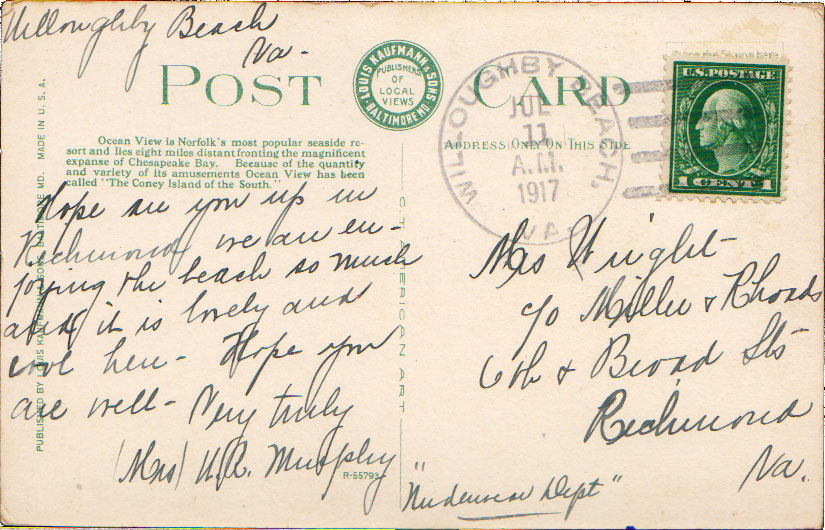 Willoughby Beach
Va-
POST CARD
LOUIS KAUFMANN & SONS
BALTIMORE MD.
PUBLISHERS
OF
LOCAL
VIEWS
Ocean View is Norfolk's most popular seaside re-
sort and lies eight miles distant fronting the magnificent
expanse of Chesapeake Bay. Because of the quantity
and variety of its amusements Ocean View has been
called "The Coney Island of the South."
ADDRESS ONLY ON THIS SIDE
WILLOUGHBY BEACH,
VA.
JUL
11
A.M.
1917
U.S. POSTAGE
1 CENT 1
Hope
you up in
Richmond we are en-
joying the beach so much
and it is lovely and
cool here- Hope you
are well- Very truly
(Mrs) W.R. Murphy
R-55793
PUBLISHED BY LOUIS KAUFMANN & SONS, BALTIMORE MD. MADE IN U. S. A.
CT AMERICAN ART
Mrs Wright
c/o Miller & Rhoads
6th & Broad Sts
Richmond
Va.
"Underwear Dept"